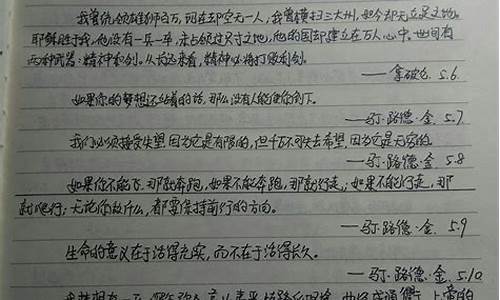 我曾统领雄师百万,现在却空无一人,我曾横扫三大洲,如今却无立足之地。
耶稣胜于我,他没有一兵一卒,未占领过尺寸之地,他的国却建立在万人心中。世间有
两种武器:精神和剑。从长远来看,精神必将打败利剑。
——拿破仑 5.6
如果你的梦想还站着的话,那么没有人能使你倒下。
——马丁·路德·金 5.7
我们必须接受失望,因为它是有限的,但千万不可失去希望,因为它是无穷的。
——马丁·路德·金 5.8
如果你不能飞,那就奔跑,如果不能奔跑,那就行走;如果不能行走,那
就爬行;无论你做什么,都要保持前行的方向。
——马丁·路德·金 5.9
生命的意义在于活得充实,而不在于活得长久。
——马丁·路德·金 5.10